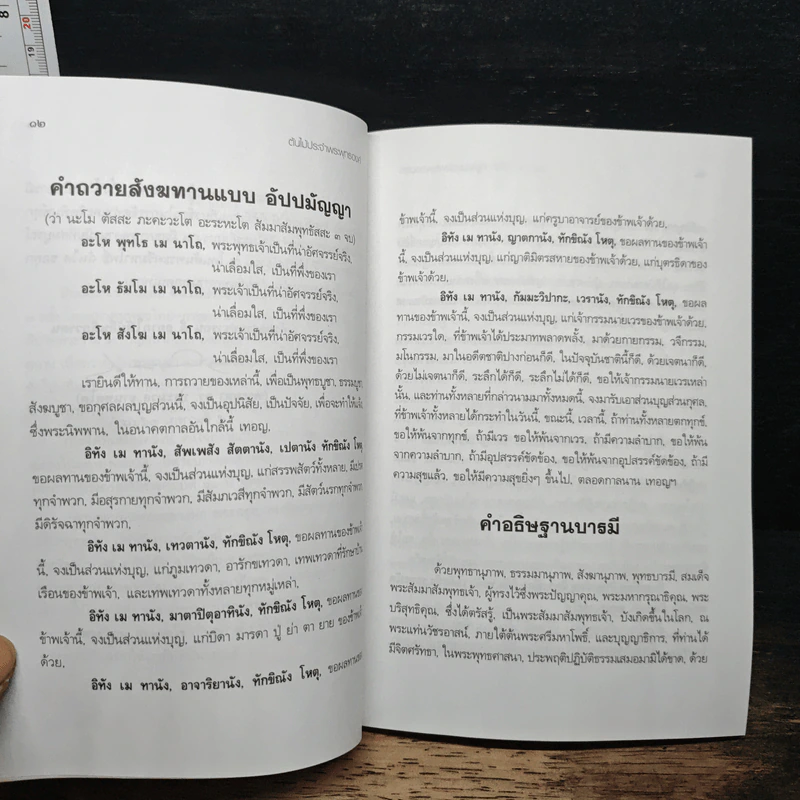 8
19
20
๑๒
ต้นไม้ประจำพระพุทธองค์
คำถวายสังฆทานแบบ อัปปมัญญา
(ว่า นะโม ตัสสะ ภะคะวะโต อะระหะโต สัมมาสัมพุทธัสสะ ๓ จบ)
อะโห พุทโธ เม นาโถ, พระพุทธเจ้าเป็นที่น่าอัศจรรย์จริง,
น่าเลื่อมใส, เป็นที่พึ่งของเรา
อะโห ธัมโม เม นาโถ, พระเจ้าเป็นที่น่าอัศจรรย์จริง,
น่าเลื่อมใส, เป็นที่พึ่งของเรา
อะโห สังโฆ เม นาโถ, พระเจ้าเป็นที่น่าอัศจรรย์จริง,
น่าเลื่อมใส, เป็นที่พึ่งของเรา
เรายินดีให้ทาน, การถวายของเหล่านี้, เพื่อเป็นพุทธบูชา, ธรรมบูชา
สังฆบูชา, ขอกุศลผลบุญส่วนนี้, จงเป็นอุปนิสัย, เป็นปัจจัย, เพื่อจะทำให้แจ้ง
ซึ่งพระนิพพาน, ในอนาคตกาลอันใกล้นี้ เทอญ,
อิทัง เม ทานัง, สัพเพสัง สัตตานัง, เปตานัง ทักขิณัง โหตุ
ขอผลทานของข้าพเจ้านี้, จงเป็นส่วนแห่งบุญ, แก่สรรพสัตว์ทั้งหลาย, มีเปรต
ทุกจำพวก, มีอสุรกายทุกจำพวก, มีสัมภเวสีทุกจำพวก, มีสัตว์นรกทุกจำพวก
มีดิรัจฉาทุกจำพวก,
อิทัง เม ทานัง, เทวตานัง, ทักขิณัง โหตุ, ขอผลทานของข้าพเจ้า
นี้, จงเป็นส่วนแห่งบุญ, แก่ภูมเทวดา, อารักขเทวดา, เทพเทวดาที่รักษาบ้าน
เรือนของข้าพเจ้า, และเทพเทวดาทั้งหลายทุกหมู่เหล่า,
อิทัง เม ทานัง, มาตาปิตุอาทินัง, ทักขิณัง โหตุ, ขอผลทานของ
ข้าพเจ้านี้, จงเป็นส่วนแห่งบุญ, แก่บิดา มารดา ปู่ ย่า ตา ยาย ของข้าพเจ้า
ด้วย,
อิทัง เม ทานัง, อาจาริยานัง, ทักขิณัง โหตุ, ขอผลทานของ
ข้าพเจ้านี้, จงเป็นส่วนแห่งบุญ, แก่ครูบาอาจารย์ของข้าพเจ้าด้วย,
อิทัง เม ทานัง, ญาตกานัง, ทักขิณัง โหตุ, ขอผลทานของข้าพเจ้า
นี้, จงเป็นส่วนแห่งบุญ, แก่ญาติมิตรสหายของข้าพเจ้าด้วย, แก่บุตรธิดาของ
ข้าพเจ้าด้วย,
อิทัง เม ทานัง, กัมมะวิปากะ, เวรานัง, ทักขิณัง โหตุ, ขอผล
ทานของข้าพเจ้านี้, จงเป็นส่วนแห่งบุญ, แก่เจ้ากรรมนายเวรของข้าพเจ้าด้วย,
กรรมเวรใด, ที่ข้าพเจ้าได้ประมาทพลาดพลั้ง, มาด้วยกายกรรม, วจีกรรม,
มโนกรรม, มาในอดีตชาติปางก่อนก็ดี, ในปัจจุบันชาตินี้ก็ดี, ด้วยเจตนาก็ดี,
ด้วยไม่เจตนาก็ดี, ระลึกได้ก็ดี, ระลึกไม่ได้ก็ดี, ขอให้เจ้ากรรมนายเวรเหล่า
นั้น, และท่านทั้งหลายที่กล่าวนามมาทั้งหมดนี้, จงมารับเอาส่วนบุญส่วนกุศล,
ที่ข้าพเจ้าทั้งหลายได้กระทำในวันนี้, ขณะนี้, เวลานี้, ถ้าท่านทั้งหลายตกทุกข์,
ขอให้พ้นจากทุกข์, ถ้ามีเวร ขอให้พ้นจากเวร, ถ้ามีความลำบาก, ขอให้พ้น
จากความลำบาก, ถ้ามีอุปสรรค์ขัดข้อง, ขอให้พ้นจากอุปสรรค์ขัดข้อง, ถ้ามี
ความสุขแล้ว, ขอให้มีความสุขยิ่งๆ ขึ้นไป, ตลอดกาลนาน เทอญฯ
คำอธิษฐานบารมี
ด้วยพุทธานุภาพ, ธรรมมานุภาพ, สังฆานุภาพ, พุทธบารมี, สมเด็จ
พระสัมมาสัมพุทธเจ้า, ผู้ทรงไว้ซึ่งพระปัญญาคุณ, พระมหากรุณาธิคุณ, พระ
บริสุทธิคุณ, ซึ่งได้ตรัสรู้, เป็นพระสัมมาสัมพุทธเจ้า, บังเกิดขึ้นในโลก, ณ
พระแท่นวัชรอาสน์, ภายใต้ต้นพระศรีมหาโพธิ์, และบุญญาธิการ, ที่ท่านได้
มีจิตศรัทธา, ในพระพุทธศาสนา, ประพฤติปฏิบัติธรรมเสมอมามิได้ขาด, ด้วย